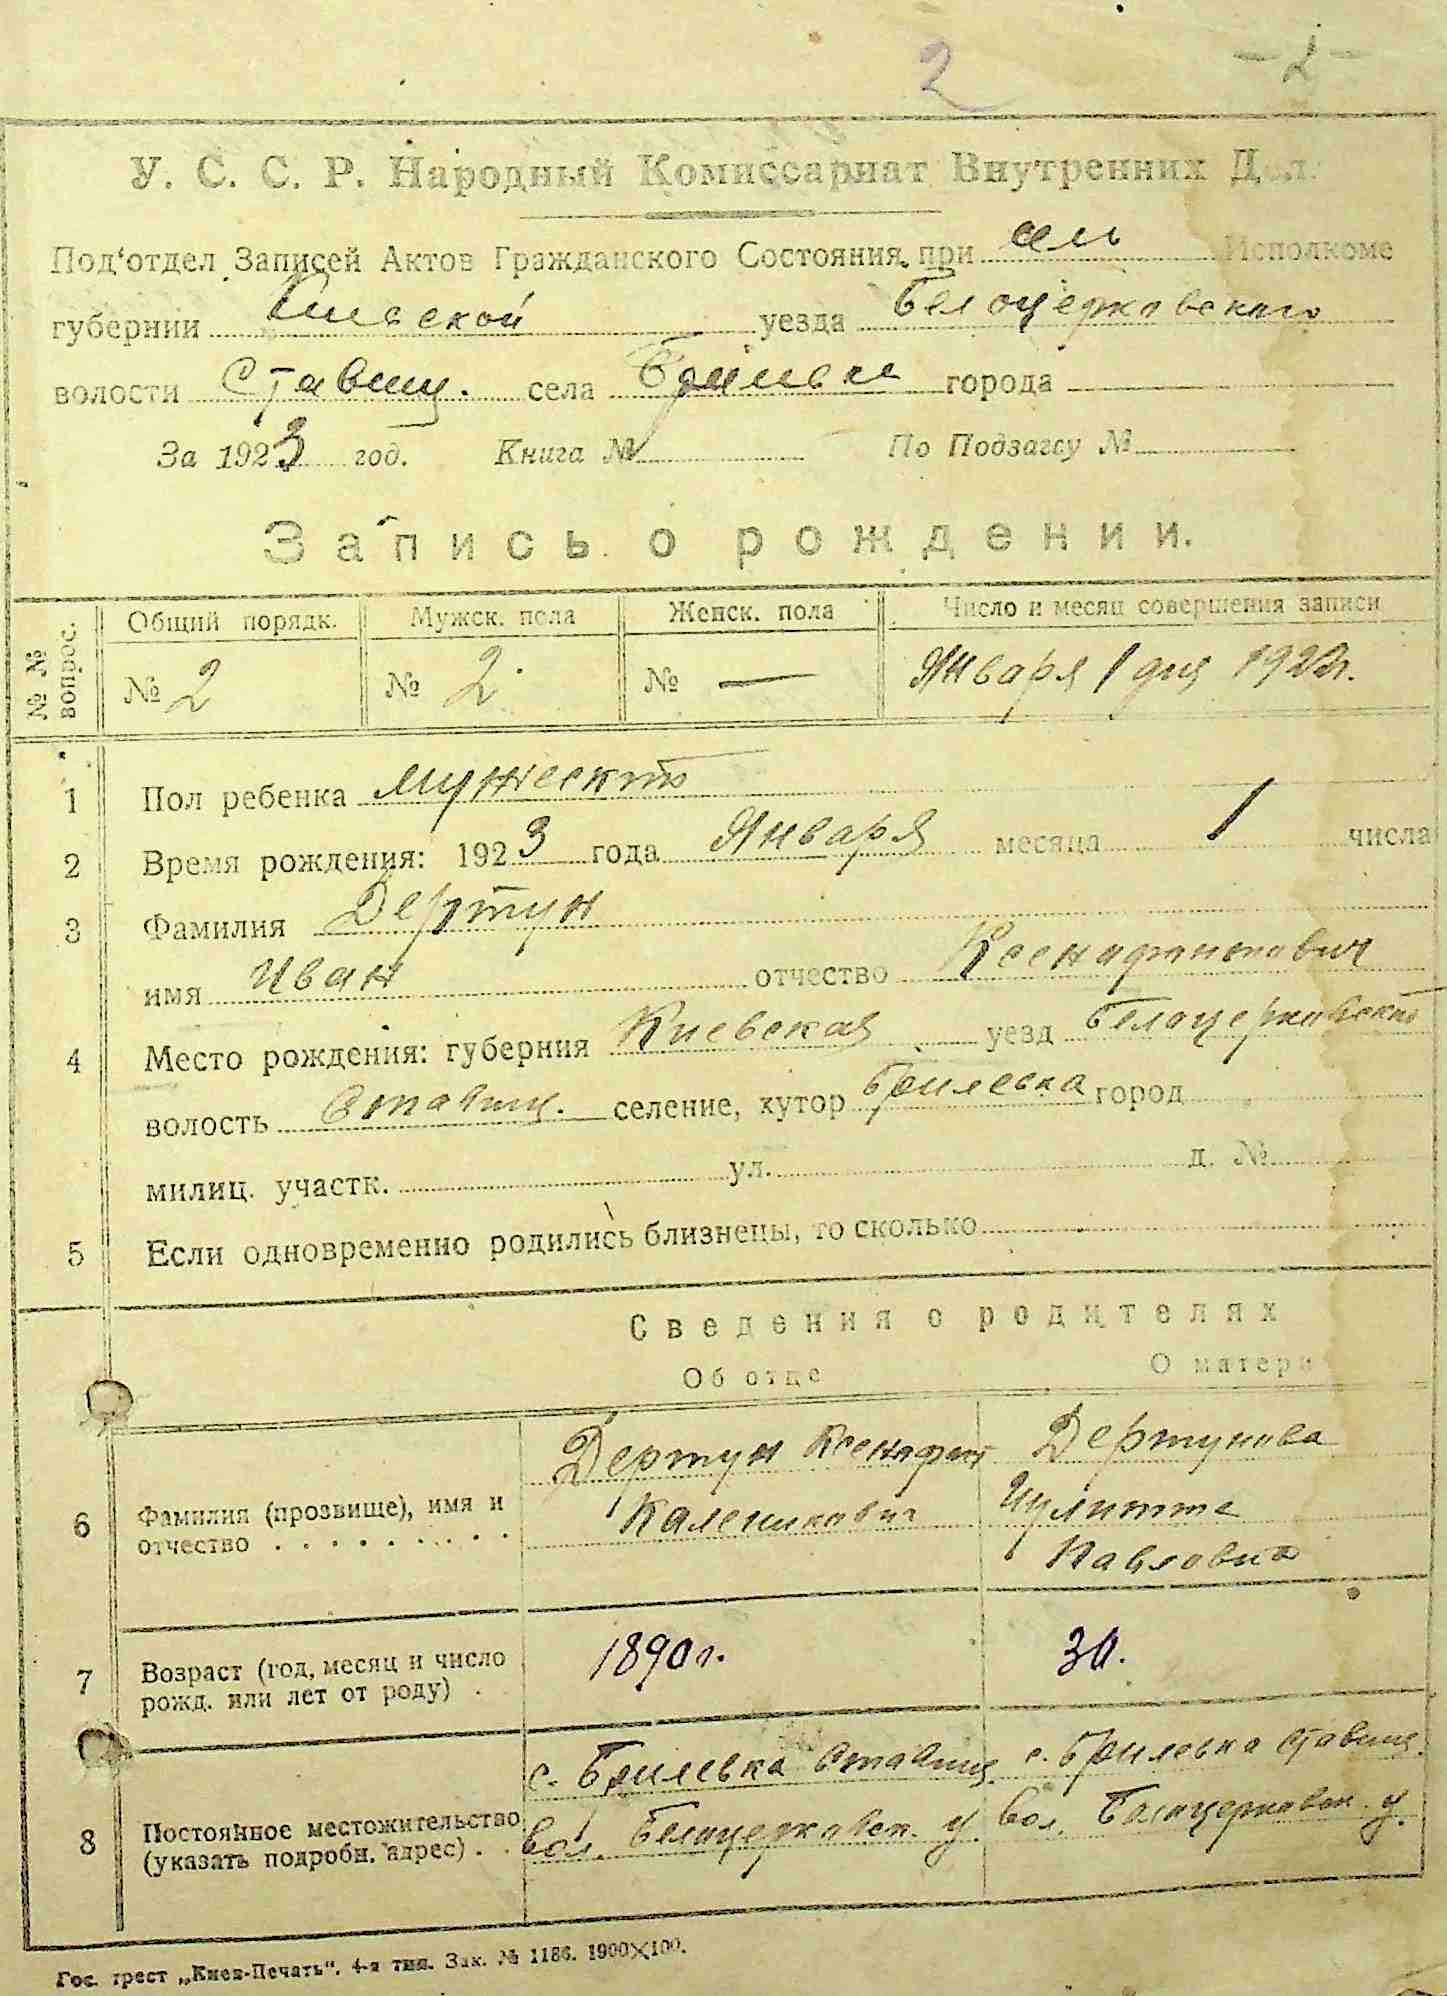 2 — 2 —
У. С. С. Р. Народный Комиссариат Внутренних Дел.
Под'отдел Записей Актов Гражданского Состояния при сель Исполкоме
губернии Киевской уезда Белоцерковского
волости Ставищ. села Брилевки города
За 1923 год. Книга № По Подзагсу №
Запись о рождении.
№ № вопрос. Общий порядк. Мужск. пола Женск. пола Число и месяц совершения записи
№ 2 № 2 № — Января 1 дня 1923 г.
1 Пол ребенка мужеского
2 Время рождения: 1923 года Января месяца 1 числа
3 Фамилия Дертун
имя Иван отчество Ксенафонтович
4 Место рождения: губерния Киевская уезд Белоцерковский
волость Ставищ. селение, хутор Брилевка город
милиц. участк. ул. д. №
5 Если одновременно родились близнецы, то сколько
Сведения о родителях
Об отце О матери
6 Фамилия (прозвище), имя и отчество Дертун Ксенафонт Каленикович Дертунова Иулитта Павловна
7 Возраст (год, месяц и число рожд. или лет от роду) 1890 г. 30.
8 Постоянное местожительство (указать подробн. адрес) с. Брилевка Ставищ. вол. Белоцерковск. у. с. Брилевка Ставищ. вол. Белоцерковск. у.
Гос. трест „Киев-Печать“. 4-я тип. Зак. № 1186. 1900×100.